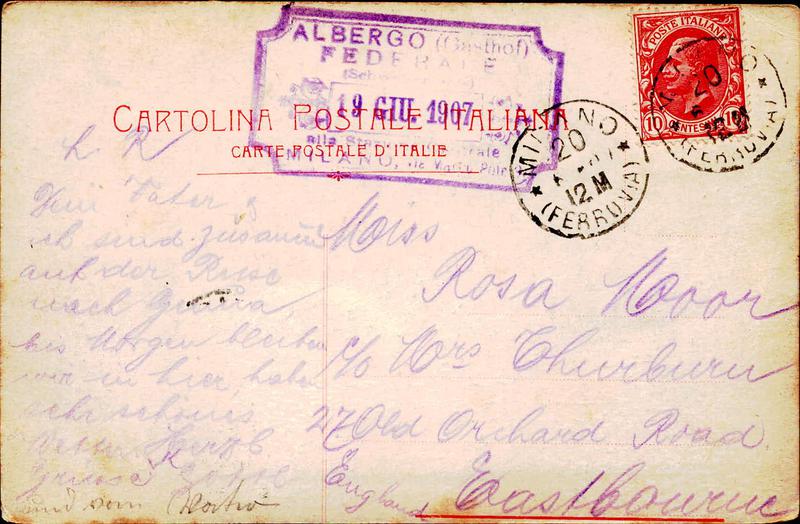 ALBERGO (Gasthof)
FEDERALE
19 GIU. 1907
CARTOLINA POSTALE ITALIANA
CARTE POSTALE D'ITALIE
alla
MILANO, via
POSTE ITALIANE
10 CENTESIMI
MILANO
20
12 M
(FERROVIA)
20
(FERROVIA)
L. R
Dein Vater &
ich sind zusamm
auf der Reise
nach Genua,
bis Morgen bleiben
wir in hier, habe
sehr schönes
Wetter Herzl
Grüsse
und vom
Miss
Rosa Moor
c/o Mrs Thurburn
27 Old Orchard Road.
Eastbourne
England